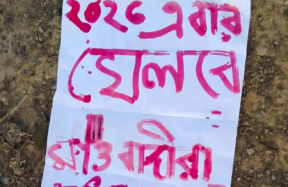 ২০২৬ এবার
খেলবে
মাওবাদীরা